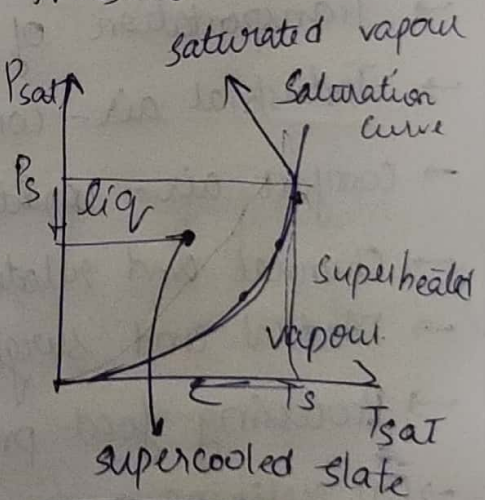 saturated vapour
Psat
Saturation
Curve
Ps
liq
superheated
vapour
Ts
TsaT
supercooled state